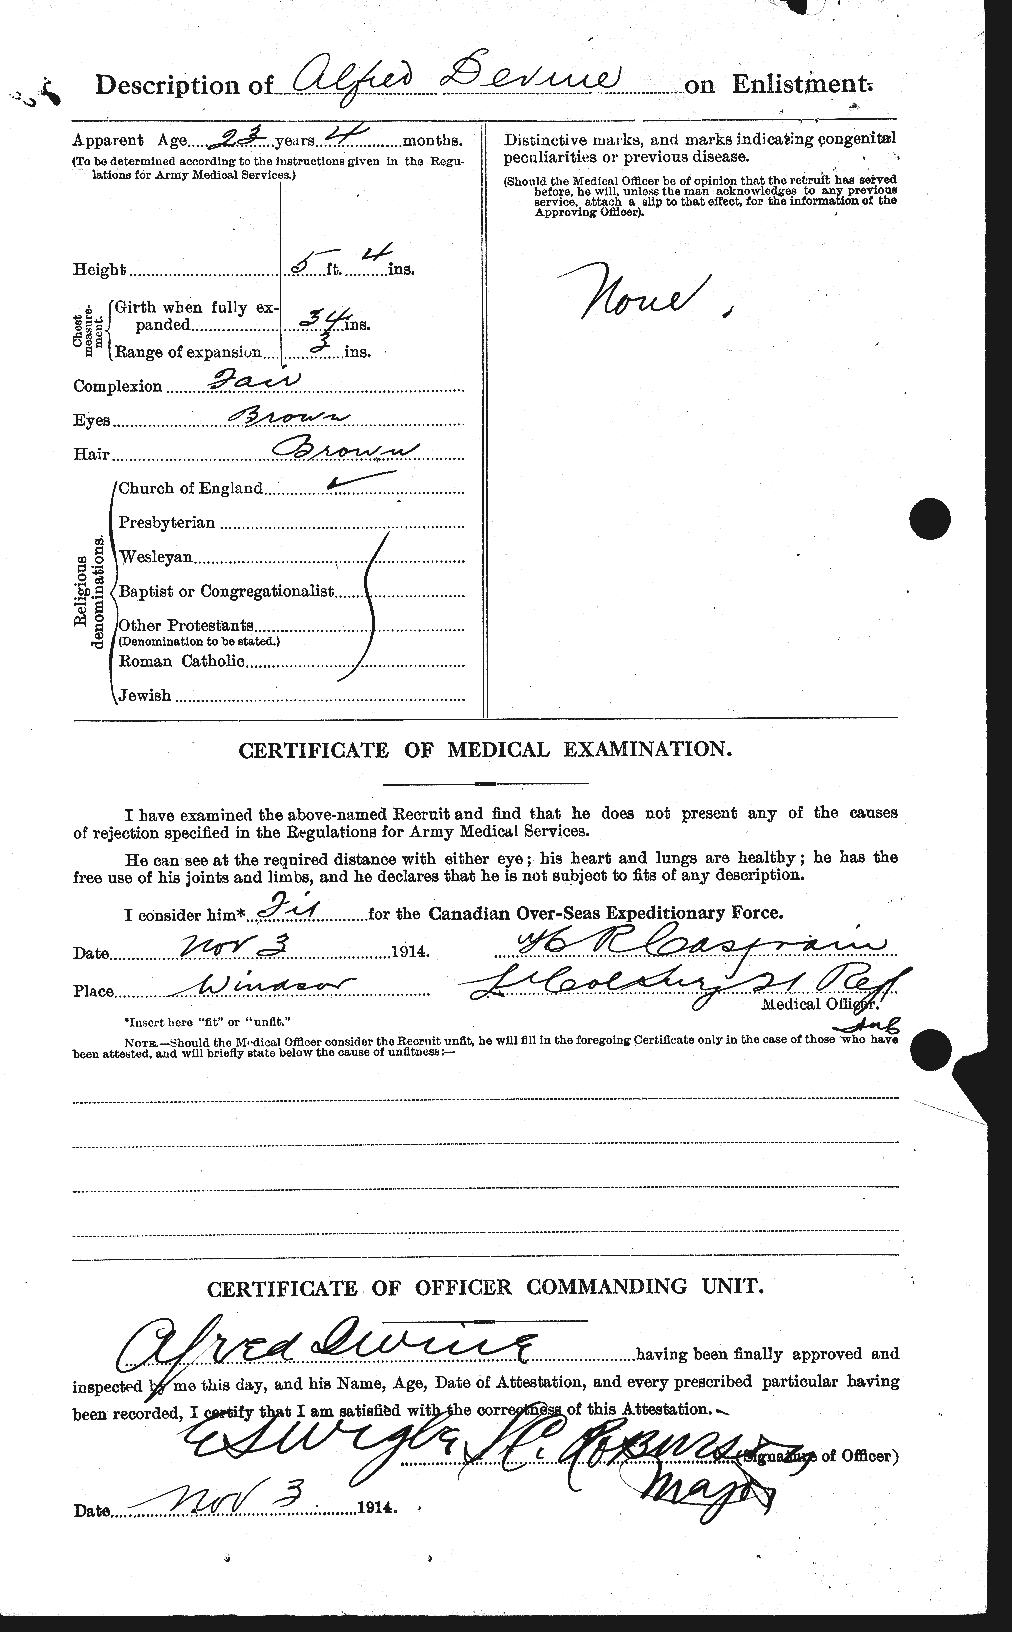 Description of Alfred Devine on Enlistment.
Apparent Age 23 years 4 months.
(To be determined according to the instructions given in the Regu-
lations for Army Medical Services.)
Height 5 ft. 4 ins.
Chest measure-ment.
Girth when fully ex-
panded 34 ins.
Range of expansion 3 ins.
Complexion Fair
Eyes Brown
Hair Brown
Religious denominations.
Church of England ✓
Presbyterian
Wesleyan
Baptist or Congregationalist
Other Protestants
(Denomination to be stated.)
Roman Catholic
Jewish
Distinctive marks, and marks indicating congenital
peculiarities or previous disease.
(Should the Medical Officer be of opinion that the recruit has served
before, he will, unless the man acknowledges to any previous
service, attach a slip to that effect, for the information of the
Approving Officer).
None.
CERTIFICATE OF MEDICAL EXAMINATION.
I have examined the above-named Recruit and find that he does not present any of the causes
of rejection specified in the Regulations for Army Medical Services.
He can see at the required distance with either eye; his heart and lungs are healthy; he has the
free use of his joints and limbs, and he declares that he is not subject to fits of any description.
I consider him* Fit for the Canadian Over-Seas Expeditionary Force.
Date Nov 3 1914. H R Casgrain
Place Windsor 21 Reg
Medical Officer.
*Insert here "fit" or "unfit."
NOTE.—Should the Medical Officer consider the Recruit unfit, he will fill in the foregoing Certificate only in the case of those who have
been attested, and will briefly state below the cause of unfitness:—
CERTIFICATE OF OFFICER COMMANDING UNIT.
Alfred Devine having been finally approved and
inspected by me this day, and his Name, Age, Date of Attestation, and every prescribed particular having
been recorded, I certify that I am satisfied with the correctness of this Attestation.
E S Wigle (Signature of Officer)
Major
Date Nov 3 1914.